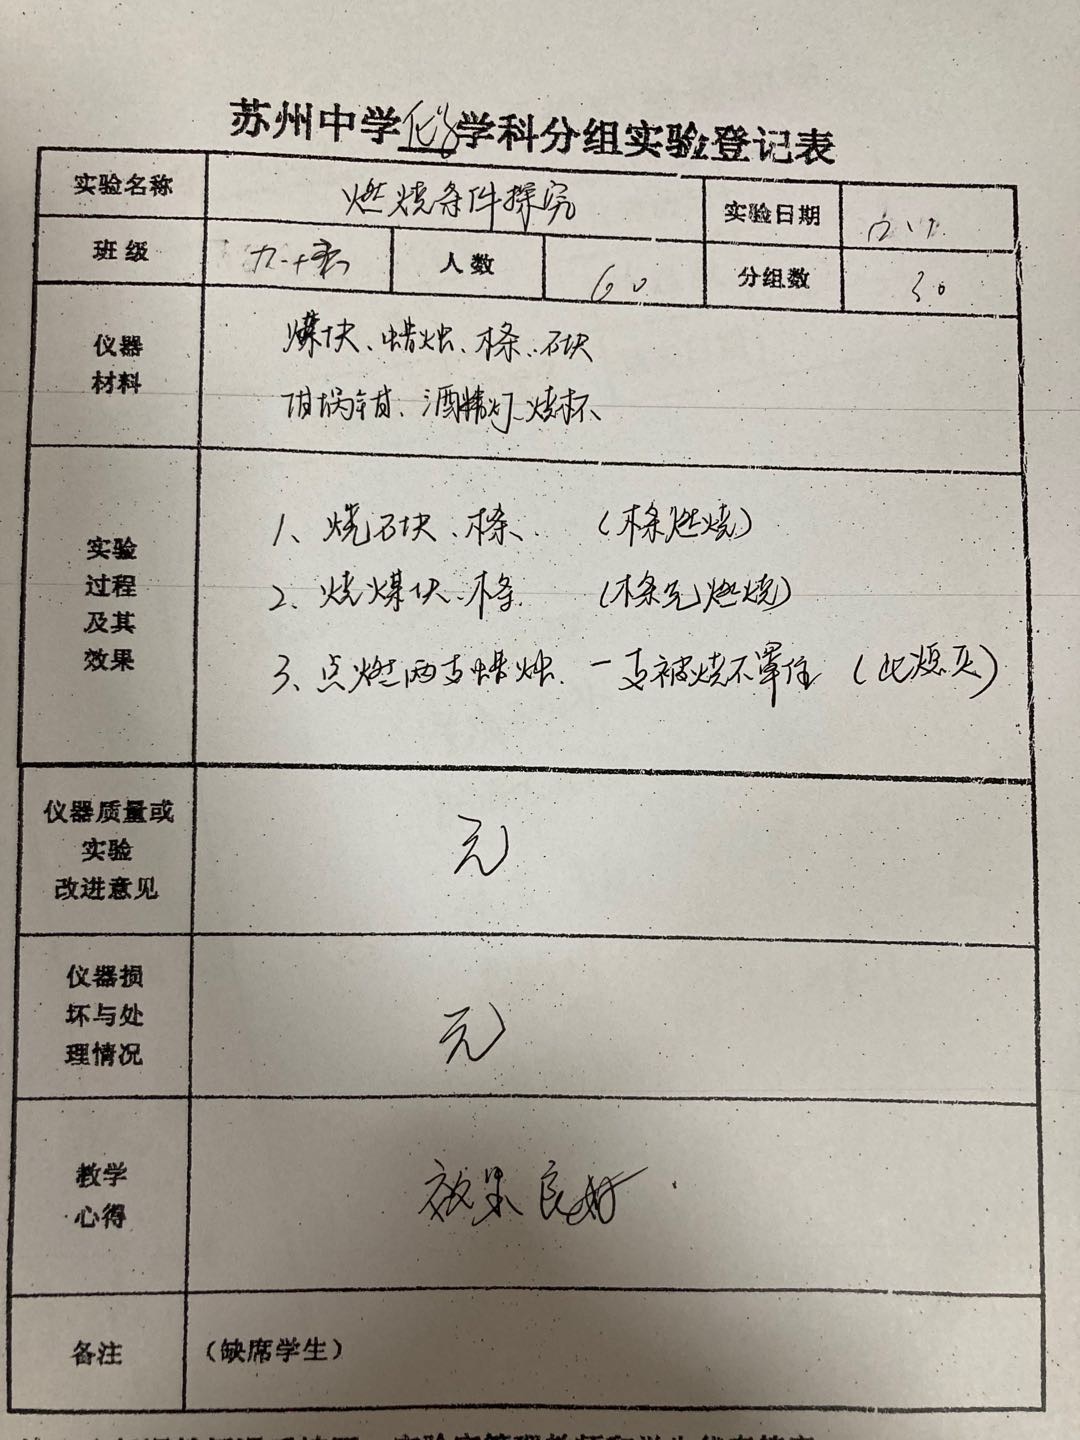 苏州中学化学学科分组实验登记表
实验名称 燃烧条件探究 实验日期
班级 人数 60 分组数 30
仪器材料
煤块、蜡烛、木条、石块
坩埚钳、酒精灯、烧杯
实验过程及其效果
1、烧石块、木条、 (木条燃烧)
2、烧煤块、木条 (木条先燃烧)
3、点燃两支蜡烛、一支被烧杯罩住 (此熄灭)
仪器质量或实验改进意见
无
仪器损坏与处理情况
无
教学心得
效果良好.
备注 (缺席学生)